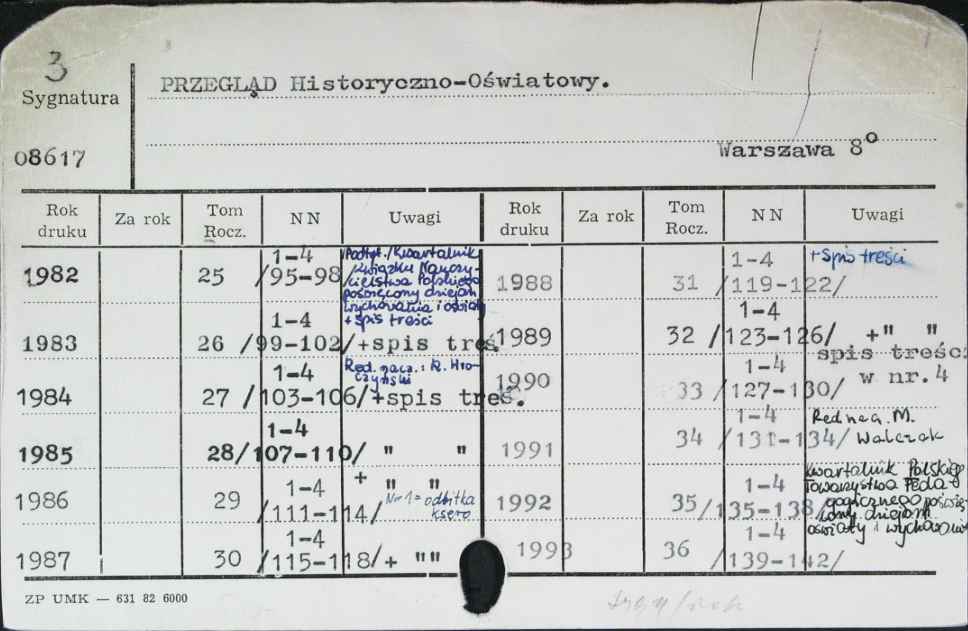 3
PRZEGLĄD Historyczno-Oświatowy.
Sygnatura
08617
Warszawa 8°
Rok druku Za rok Tom Rocz. NN Uwagi Rok druku Za rok Tom Rocz. NN Uwagi
1982 25 1-4 /95-98
Podtyt./Kwartalnik
/Związku Nauczy-
cielstwa Polskiego
poświęcony dziejom
wychowania i oświaty
+ spis treści
1983 26 1-4 /99-102/ +spis treś.
Red. nacz.: R. Wro-
czyński
1984 27 1-4 /103-106/ +spis treś.
1985 28 1-4 /107-110/ " "
1986 29 1-4 /111-114/ + " "
Nr 1 = odbitka
ksero
1987 30 1-4 /115-118/ + ""
1988 31 1-4 /119-122/ + Spis treści
1989 32 1-4 /123-126/ +" "
spis treści
w nr.4
1990 33 1-4 /127-130/
1991 34 1-4 /131-134/
Red nacz. M.
Walczak
1992 35 1-4 /135-138/
Kwartalnik Polskiego
Towarzystwa Peda-
gogicznego poświę
cony dziejom
oświaty i wychowania
1993 36 1-4 /139-142/
ZP UMK — 631 82 6000